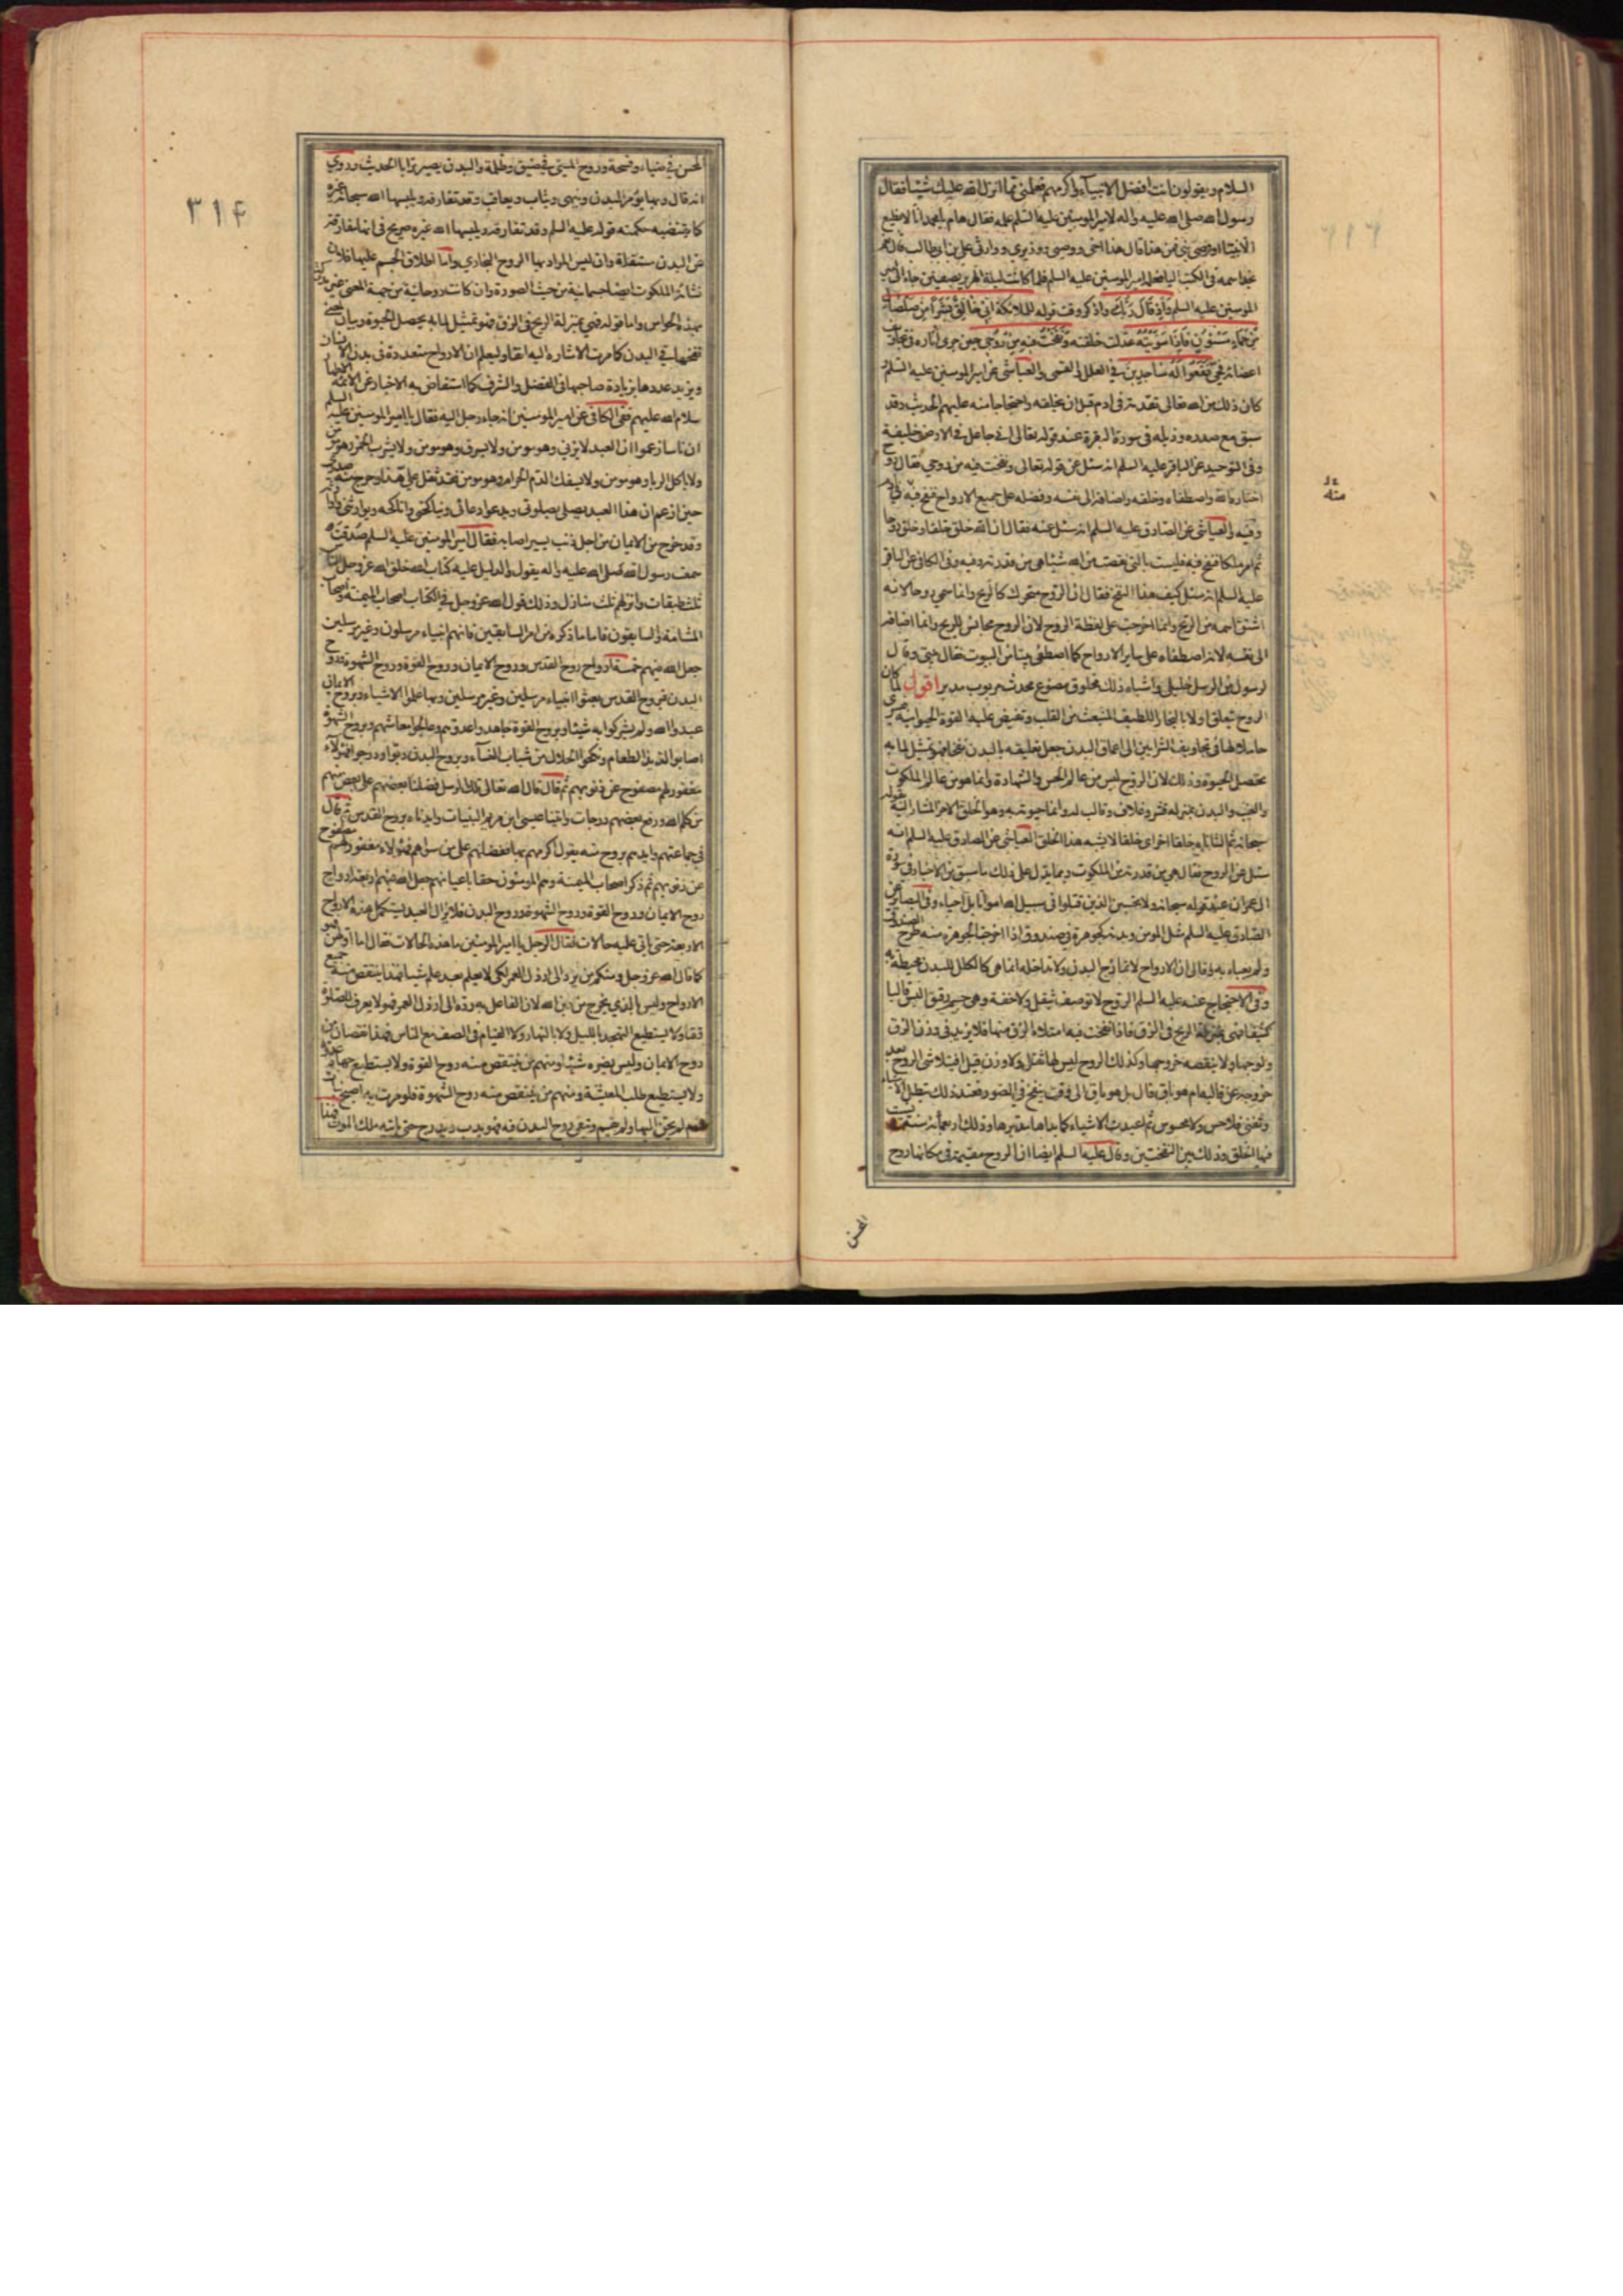 السلام ويقولون انت افضل الانبياء واكرمهم فعلمني مما انزل الله عليك شيئا فقال
رسول الله صلى الله عليه واله لامير المومنين عليه السلم علمه فقال هام يا محمد انا لا نطيع
الا نبيا او وصي نبي فمن هذا قال هذا اخي ووصيي ووزيري ووارثي علي بن ابي طالب قال نعم
نجد اسمه في الكتب اليا فعلمه امير المومنين عليه السلم فلما كانت ليلة الهرير بصفين جاء الى امير
المومنين عليه السلم واذ قال ربك واذكر وقت قوله للملائكة اني خالق بشرا من صلصال
من حماء مسنون فاذا سويته عدلت خلقته ونفخت فيه من روحي حين جرى اثاره في تجاويف
اعضائه فحيي فقعوا له ساجدين في العلل والقمي والعياشي عن امير المومنين عليه السلم
كان ذلك من الله تعالى تقدمة في ادم قبل ان يخلقه واحتجاجا منه عليهم الحديث وقد
سبق مع صدره وذيله في سورة البقرة عند قوله تعالى اني جاعل في الارض خليفة
وفي التوحيد عن الباقر عليه السلم انه سئل عن قوله تعالى ونفخت فيه من روحي فقال روح
اختاره الله واصطفاه وخلقه واضافه الى نفسه وفضله على جميع الارواح فنفخ فيه في ادم
وفيه والعياشي عن الصادق عليه السلم انه سئل عنه فقال ان الله خلق خلقا وخلق روحا
ثم امر ملكا فنفخ فيه فليست بالتي نقصت من الله شيئا هي من قدرته وفيه وفي الكافي عن الباقر
عليه السلم انه سئل كيف هذا النفخ فقال ان الروح متحرك كالريح وانما سمي روحا لانه
اشتق اسمه من الريح وانما اخرجت على لفظة الروح لان الروح مجانس للريح وانما اضافه
الى نفسه لانه اصطفاه على ساير الارواح كما اصطفى بيتا من البيوت فقال بيتي وقال
لرسول من الرسل خليلي واشباه ذلك مخلوق مصنوع محدث مربوب مدبر اقول لما كان
الروح تعلق اولا بالبخار اللطيف المنبعث من القلب وتفيض عليه القوة الحيوانية فيسري
حاملا لها في تجاويف الشرايين الى اعماق البدن جعل تعليقه بالبدن نفخا فهو تمثيل لما به
تحصل الحيوة وذلك لان الروح ليس من عالم الحس والشهادة وانما هو من عالم الملكوت
والغيب والبدن بمنزلة قشر وغلاف وقالب له وانما حيوته به وهو الخلق الاخر المشار اليه بقوله
سبحانه ثم انشاناه خلقا اخر اي خلقا لا يشبه هذا الخلق العياشي عن الصادق عليه السلم انه
سئل عن الروح فقال هي من قدرته من الملكوت ومما يدل على ذلك ما سبق من الاخبار في سورة
ال عمران عند قوله سبحانه ولا تحسبن الذين قتلوا في سبيل الله امواتا بل احياء وفي البصاير عن
الصادق عليه السلم مثل المومن وبدنه كجوهرة في صندوق اذا اخرجت الجوهرة منه طرح الصندوق
ولم يعباء به وقال ان الارواح لا تمازج البدن ولا تداخله انما هي كالكلل للبدن محيطة به
وفي الاحتجاج عنه عليه السلم الروح لا توصف بثقل ولا خفة وهي جسم رقيق البس قالبا
كثيفا فهي بمنزلة الريح في الزق فاذا نفخت فيه امتلاء الزق منها فلا يزيد في وزن الزق
ولوجها ولا ينقصه خروجها وكذلك الروح ليس لها ثقل ولا وزن قيل افيتلاشى الروح بعد
خروجه عن قالبه ام هو باق قال بل هو باق الى وقت ينفخ في الصور فعند ذلك تبطل الاشياء
وتفنى فلا حس ولا محسوس ثم اعيدت الاشياء كما بداها مدبرها وذلك اربعمائة سنة يسبت
فيها الخلق وذلك بين النفختين وقال عليه السلم ايضا ان الروح مقيمة في مكانها روح
المحسن
منه
٣١٤
المحسن في ضياء وفسحة وروح المسيئ في ضيق وظلمة والبدن يصير ترابا الحديث وروي
انه قال وبها يؤمر البدن وينهى ويثاب ويعاقب وقد تفارقه ويلبسها الله سبحانه غيره
كما تقتضيه حكمته قوله عليه السلم وقد تفارقه ويلبسها الله غيره صريح في انها مفارقة
عن البدن مستقلة وان ليس المراد بها الروح البخاري واما اطلاق الجسم عليها فلان
نشاة الملكوت ايضا جسمانية من حيث الصورة وان كانت روحانية من جهة المعنى غير مدركة
بهذه الحواس واما قوله فهي بمنزلة الريح في الزق فهو تمثيل لما به يحصل الحيوة وبيان لمعنى
نفخها في البدن كما مرت الاشارة اليه انفا وليعلم ان الارواح متعددة في بدن الانسان
ويزيد عددها بزيادة صاحبها في الفضل والشرف كما استفاض به الاخبار عن الائمة الاطهار
سلام الله عليهم ففي الكافي عن امير المومنين انه جاء رجل اليه فقال يا امير المومنين عليه السلم
ان ناسا زعموا ان العبد لا يزني وهو مومن ولا يسرق وهو مومن ولا يشرب الخمر وهو مومن
ولا ياكل الربا وهو مومن ولا يسفك الدم الحرام وهو مومن فقد ثقل علي هذا وحرج منه صدري
حين ازعم ان هذا العبد يصلي صلوتي ويدعو دعائي ويناكحني واناكحه ويوارثني واوارثه
وقد خرج من الايمان من اجل ذنب يسير اصابه فقال امير المومنين عليه السلم صدقت
سمعت رسول الله صلى الله عليه واله يقول والدليل عليه كتاب الله خلق الله عز وجل الناس
ثلث طبقات وانزلهم ثلث منازل وذلك قول الله عز وجل في الكتاب اصحاب الميمنة واصحاب
المشامة والسابقون فاما ما ذكره من امر السابقين فانهم انبياء مرسلون وغير مرسلين
جعل الله فيهم خمسة ارواح روح القدس وروح الايمان وروح القوة وروح الشهوة وروح
البدن فبروح القدس بعثوا انبياء مرسلين وغير مرسلين وبها علموا الاشياء وبروح الايمان
عبدوا الله ولم يشركوا به شيئا وبروح القوة جاهدوا عدوهم وعالجوا معاشهم وبروح الشهوة
اصابوا لذيذ الطعام ونكحوا الحلال من شباب النساء وبروح البدن دبوا ودرجوا فهؤلاء
مغفور لهم مصفوح عن ذنوبهم ثم قال قال الله تعالى تلك الرسل فضلنا بعضهم على بعض منهم
من كلم الله ورفع بعضهم درجات واتينا عيسى ابن مريم البينات وايدناه بروح القدس ثم قال
في جماعتهم وايدهم بروح منه يقول اكرمهم بها ففضلهم على من سواهم فهؤلاء مغفور لهم مصفوح
عن ذنوبهم ثم ذكر اصحاب الميمنة وهم المومنون حقا باعيانهم جعل الله فيهم اربعة ارواح
روح الايمان وروح القوة وروح الشهوة وروح البدن فلا يزال العبد يستكمل هذه الارواح
الاربعة حتى ياتي عليه حالات فقال الرجل يا امير المومنين ما هذه الحالات فقال اما اولهن فهو
كما قال الله عز وجل ومنكم من يرد الى ارذل العمر لكي لا يعلم بعد علم شيئا فهذا ينتقص منه جميع
الارواح وليس بالذي يخرج من دين الله لان الفاعل به رده الى ارذل العمر فهو لا يعرف للصلوة
وقتا ولا يستطيع التهجد بالليل ولا بالنهار ولا القيام في الصف مع الناس فهذا نقصان من
روح الايمان وليس يضره شيئا ومنهم من ينتقص منه روح القوة ولا يستطيع جهاد عدوه
ولا يستطيع طلب المعيشة ومنهم من ينتقص منه روح الشهوة فلو مرت به اصبح بنات
ادم لم يحن اليها ولم يقم وتبقى روح البدن فيه فهو يدب ويدرج حتى ياتيه ملك الموت فهذا